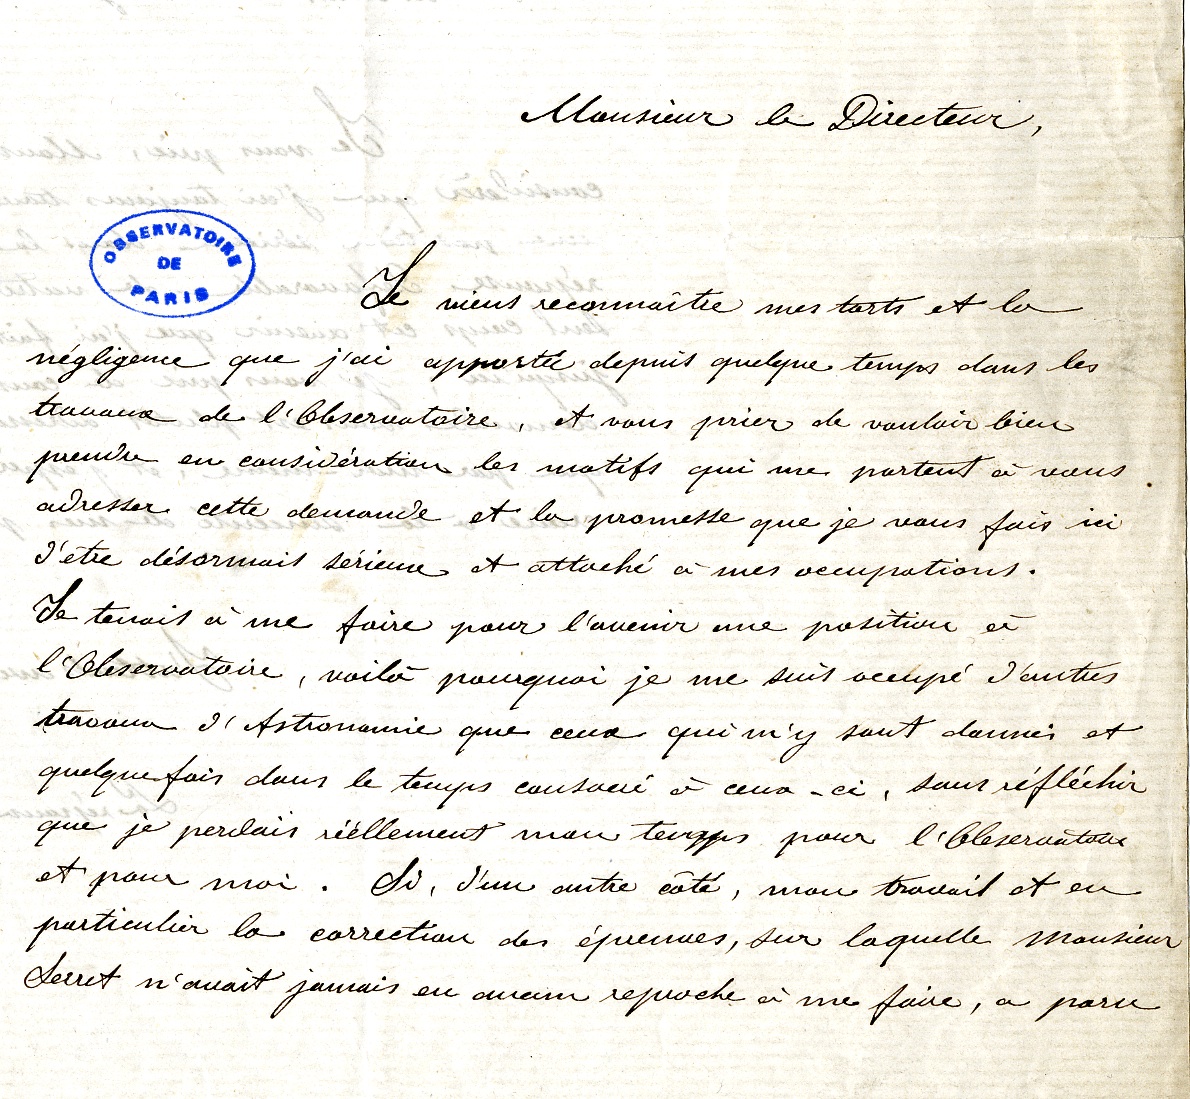 Monsieur le Directeur,
OBSERVATOIRE
DE
PARIS
Je viens reconnaître mes torts et la
négligence que j'ai apportée depuis quelque temps dans les
travaux de l'Observatoire, et vous prier de vouloir bien
prendre en considération les motifs qui me portent à vous
adresser cette demande et la promesse que je vous fais ici
d'etre désormais sérieux et attaché à mes occupations.
Je tenais à me faire pour l'avenir une position à
l'Observatoire, voilà pourquoi je me suis occupé d'autres
travaux d'Astronomie que ceux qui m'y sont donnés et
quelquefois dans le temps consacré à ceux-ci, sans réfléchir
que je perdais réellement mon temps pour l'Observatoire
et pour moi. Si, d'un autre côté, mon travail et en
particulier la correction des épreuves, sur laquelle Monsieur
Serret n'avait jamais eu aucun reproche à me faire, a paru